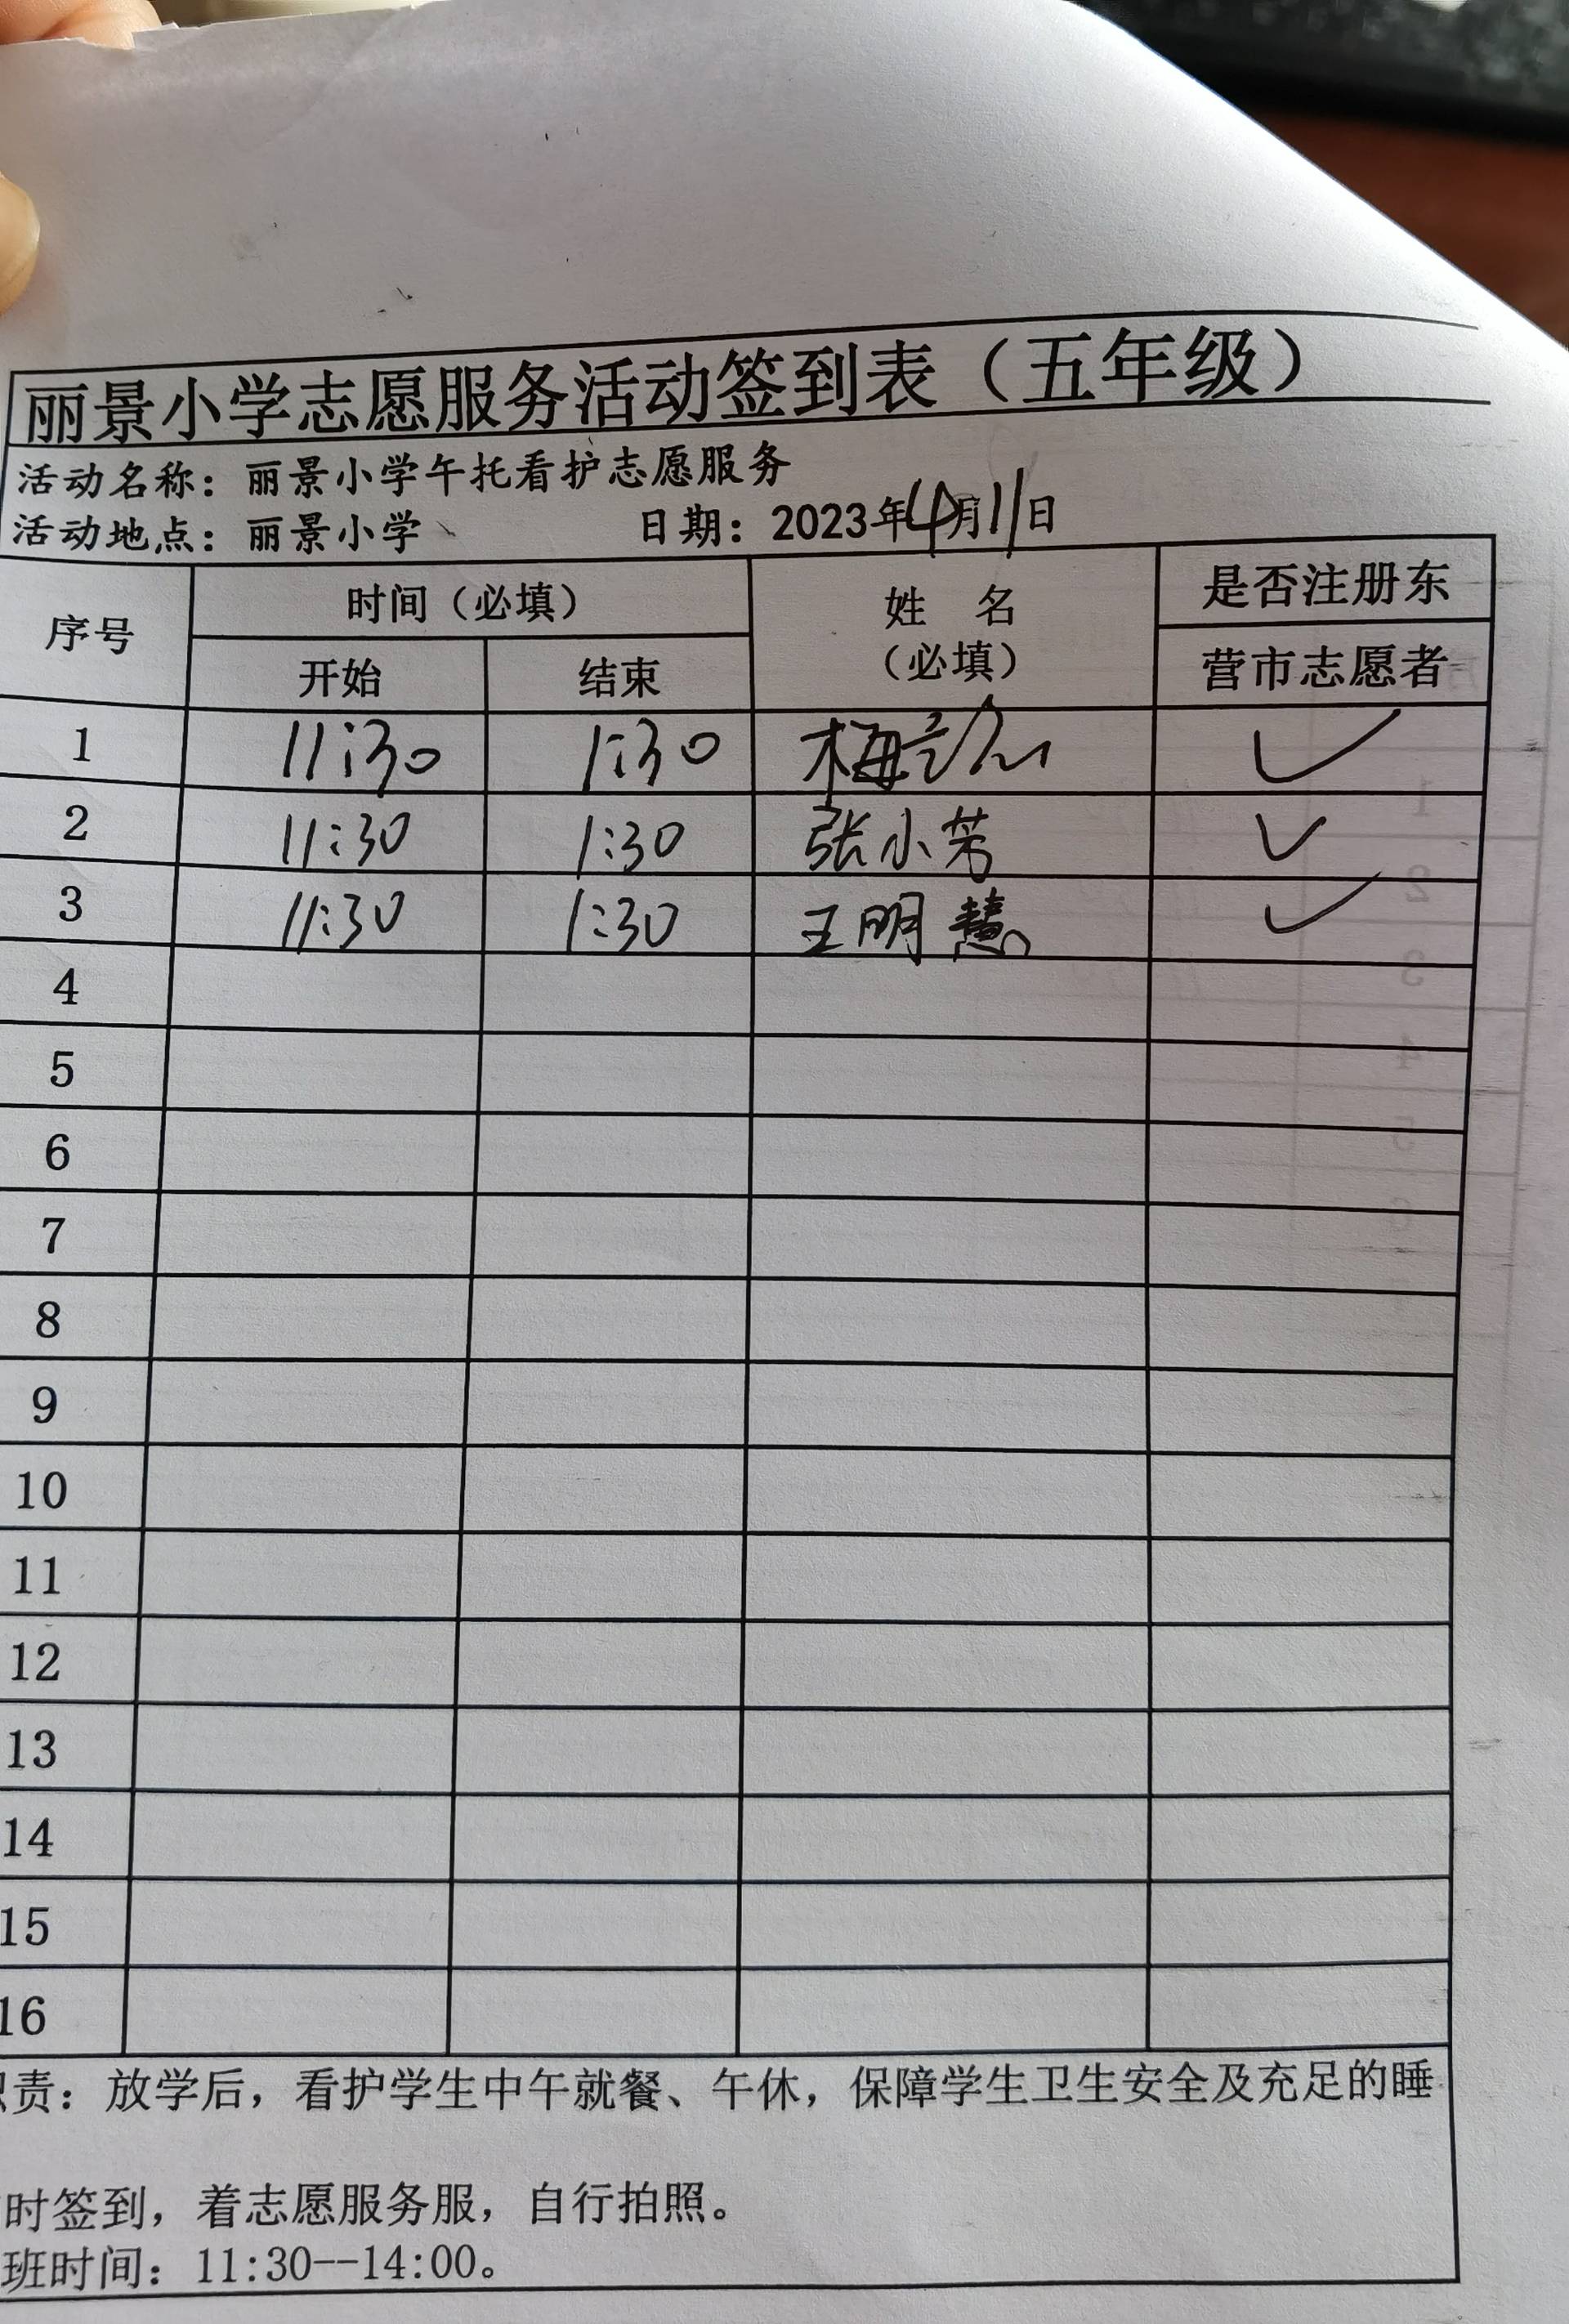 丽景小学志愿服务活动签到表（五年级）
活动名称：丽景小学午托看护志愿服务
活动地点：丽景小学 日期：2023年4月11日
序号 时间（必填） 姓名（必填） 是否注册东营市志愿者
开始 结束
1 11:30 1:30 梅 ✓
2 11:30 1:30 张小芳 ✓
3 11:30 1:30 王明慧 ✓
4
5
6
7
8
9
10
11
12
13
14
15
16
责：放学后，看护学生中午就餐、午休，保障学生卫生安全及充足的睡
时签到，着志愿服务服，自行拍照。
班时间：11:30--14:00。